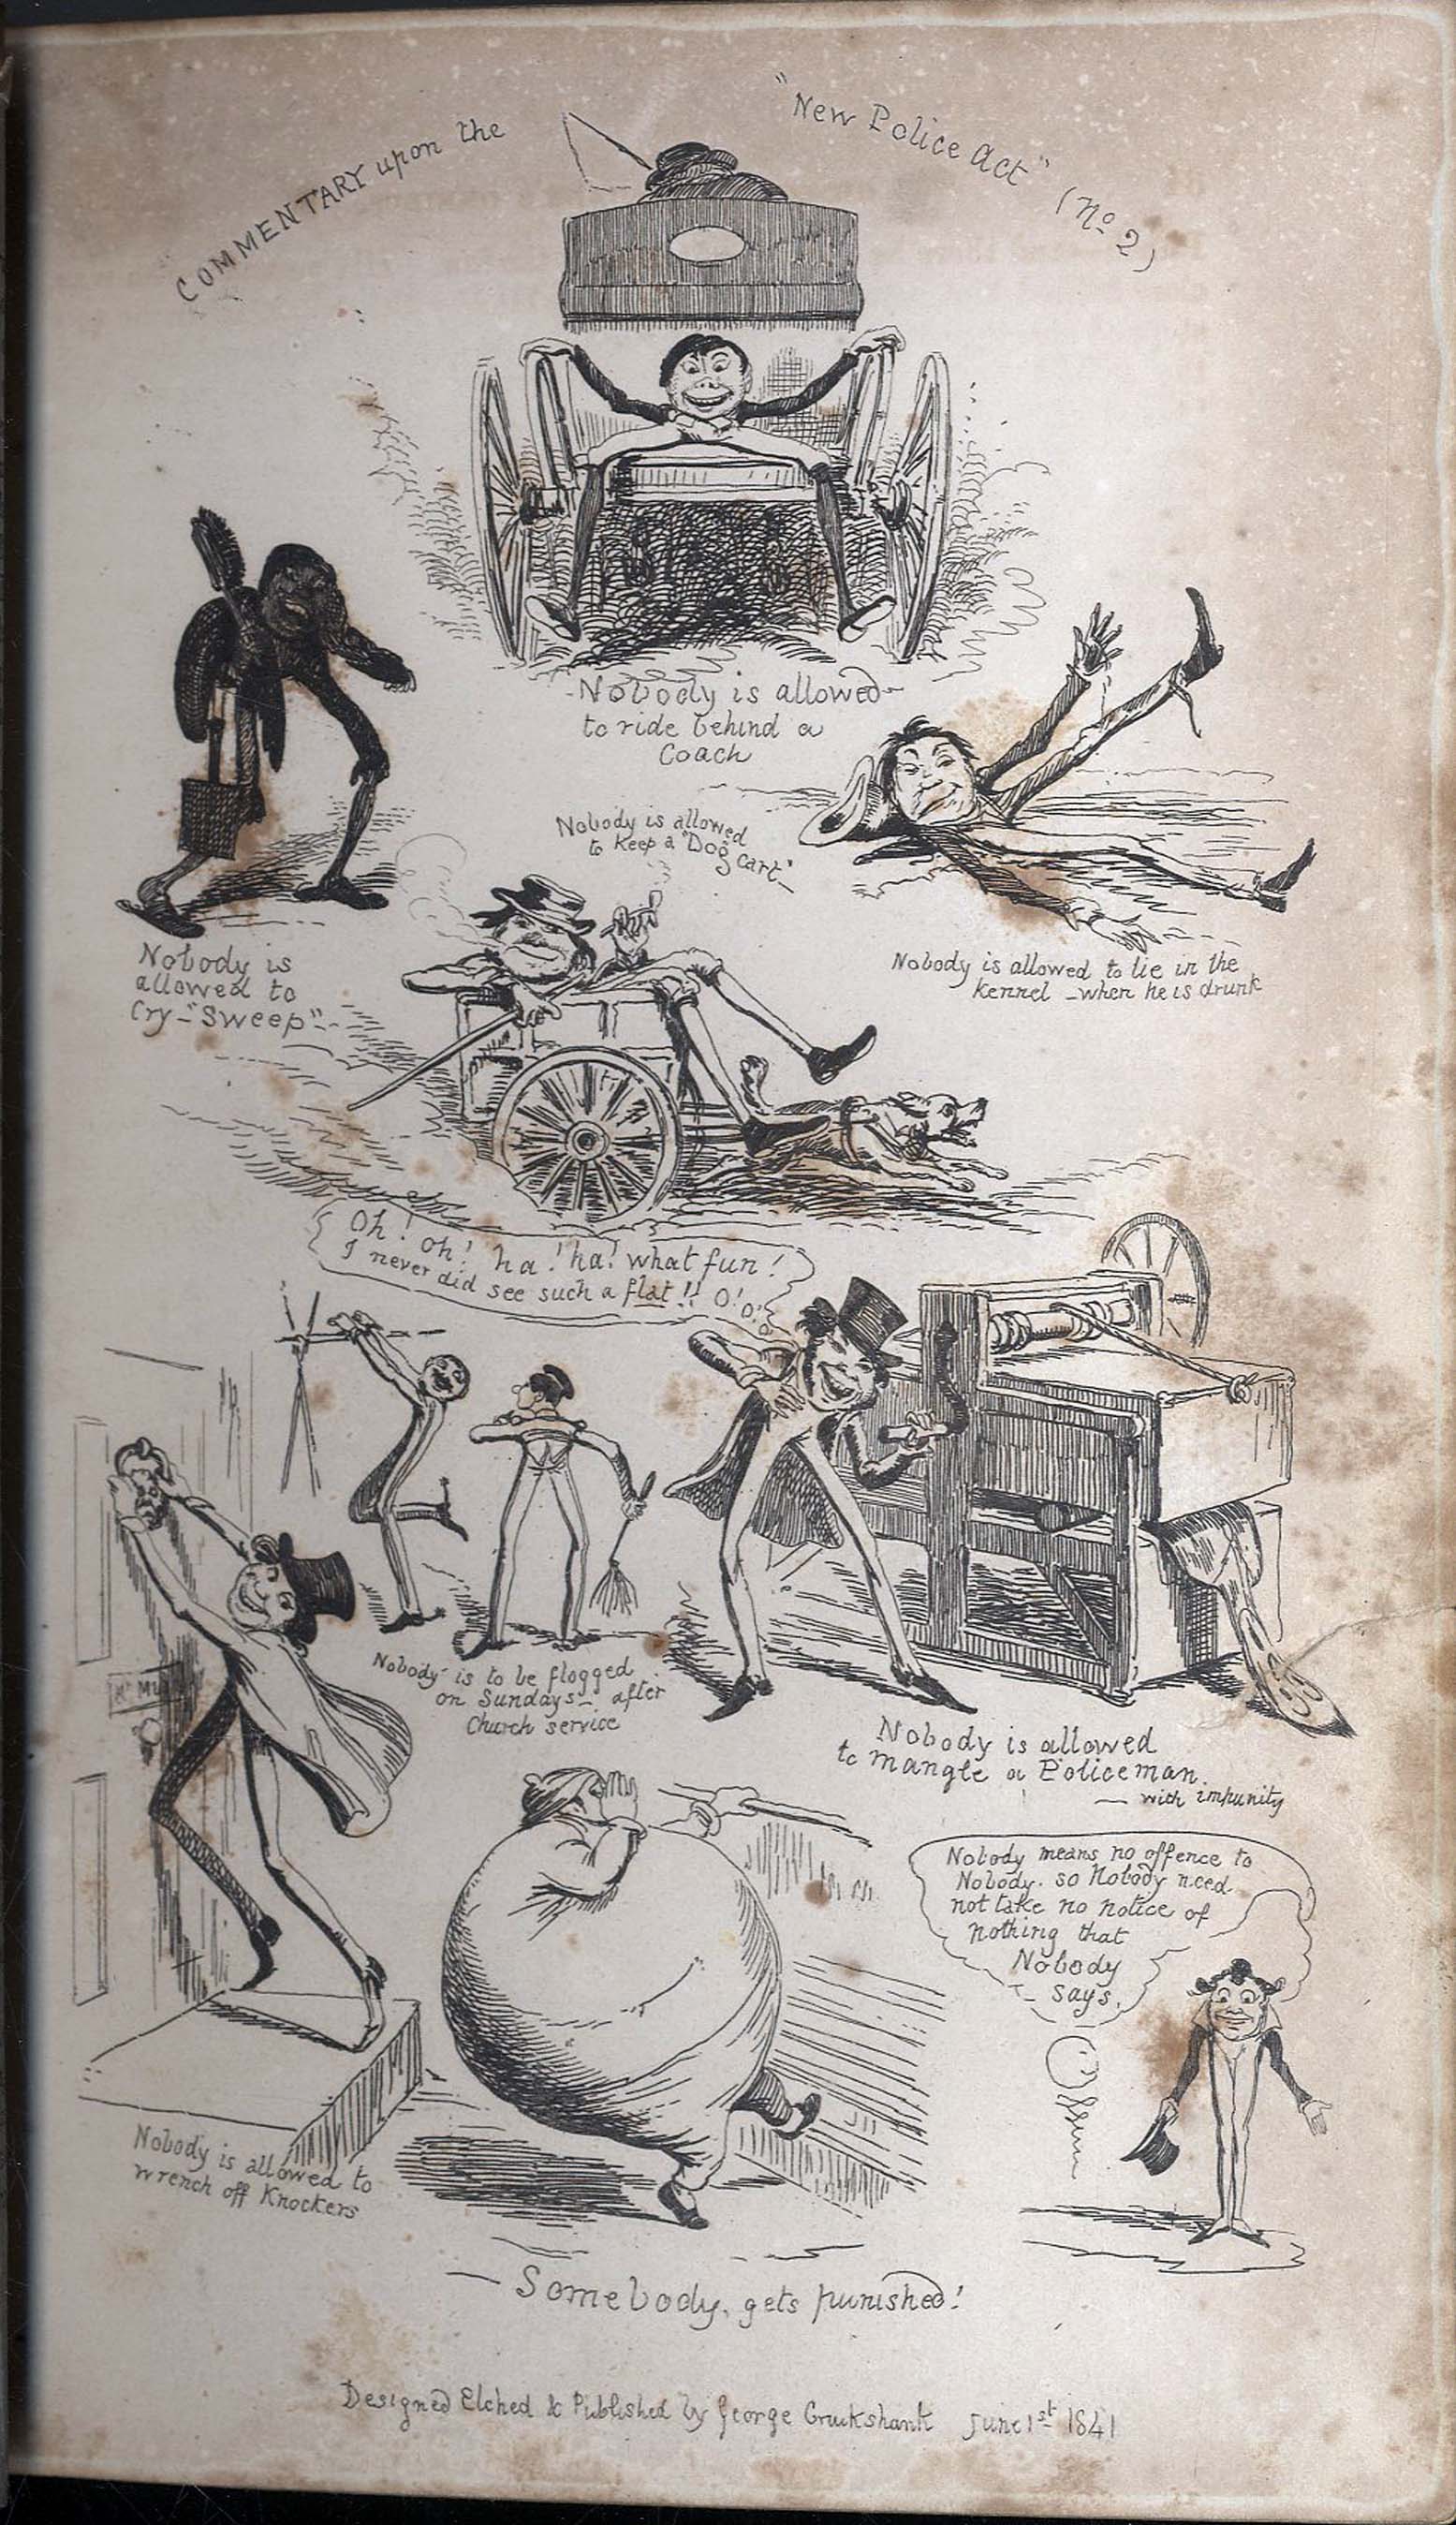 COMMENTARY upon the "New Police Act" (No 2)
Nobody is allowed
to ride behind a
Coach
Nobody is
allowed to
Cry "Sweep"
Nobody is allowed
to keep a "Dog Cart"
Nobody is allowed to lie in the
kennel - when he is drunk
Oh! oh! ha! ha! what fun!
I never did see such a flat!! O! O!
Nobody is to be flogged
on Sundays - after
Church service
Nobody is allowed
to mangle a Policeman.
— with impunity
Nobody is allowed to
wrench off Knockers
Nobody means no offence to
Nobody. so Nobody need
not take no notice of
nothing that
Nobody
says.
— Somebody, gets punished!
Designed Etched & Published by George Cruikshank June 1st 1841